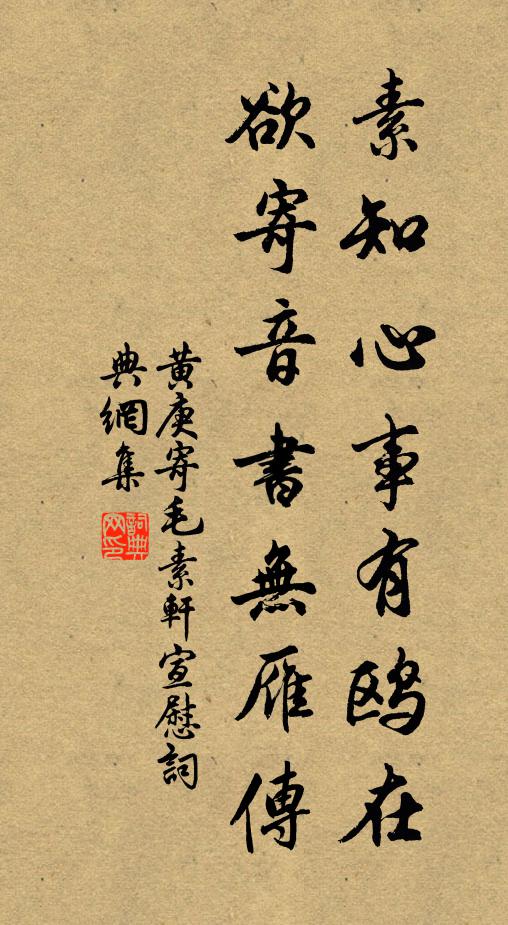 素知心事有鷗在
欲寄音書無雁傳
黃庚寄毛素軒宣慰詞
典網集
詞典
网印